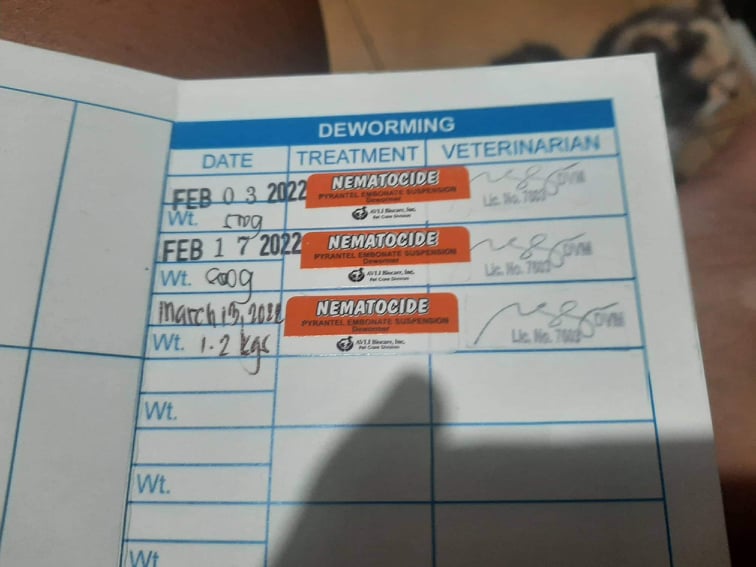 DEWORMING
DATE TREATMENT VETERINARIAN
FEB 03 2022 NEMATOCIDE
PYRANTEL EMBONATE SUSPENSION
Dewormer
AVLI Biocare, Inc.
Pet Care Division
DVM
Lic. No. 7603
Wt. 500g
FEB 17 2022 NEMATOCIDE
PYRANTEL EMBONATE SUSPENSION
Dewormer
AVLI Biocare, Inc.
Pet Care Division
DVM
Lic. No. 7603
Wt. 800g
March 13, 2022 NEMATOCIDE
PYRANTEL EMBONATE SUSPENSION
Dewormer
AVLI Biocare, Inc.
Pet Care Division
DVM
Lic. No. 7603
Wt. 1.2 kgs
Wt.
Wt.
Wt